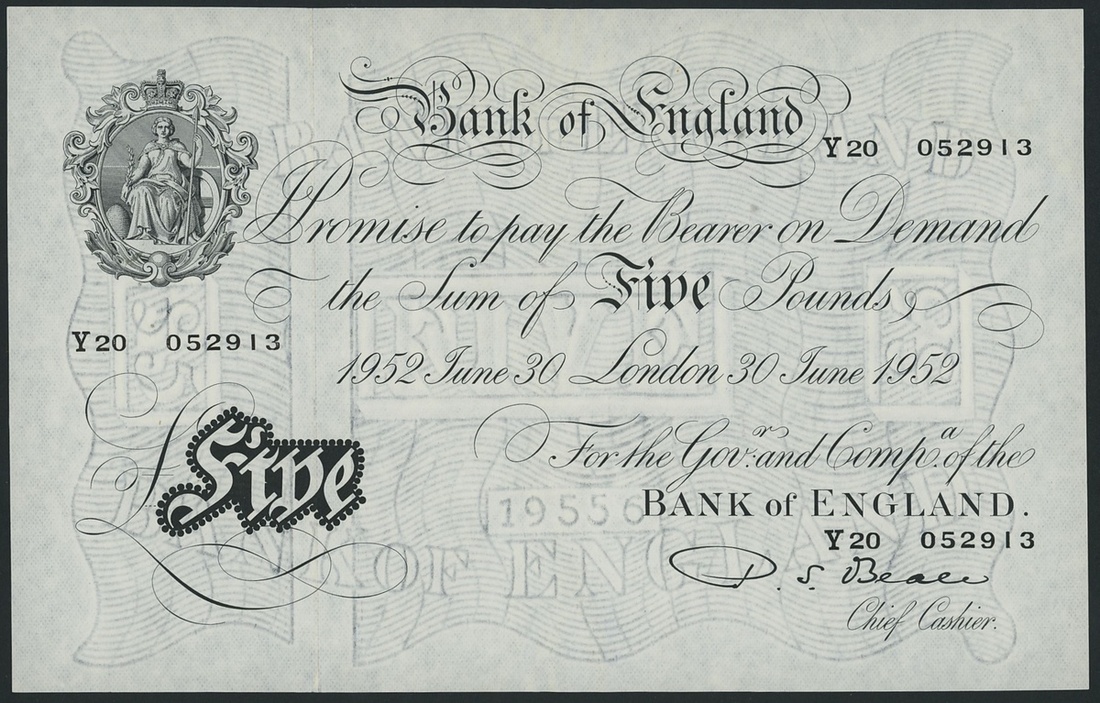 Bank of England
Y20 052913
I Promise to pay the Bearer on Demand
the Sum of Five Pounds
Y20 052913
1952 June 30 London 30 June 1952
For the Govr. and Compa. of the
BANK of ENGLAND.
£Five
19556
Y20 052913
OF ENGLAND
D. S. Beale
Chief Cashier.